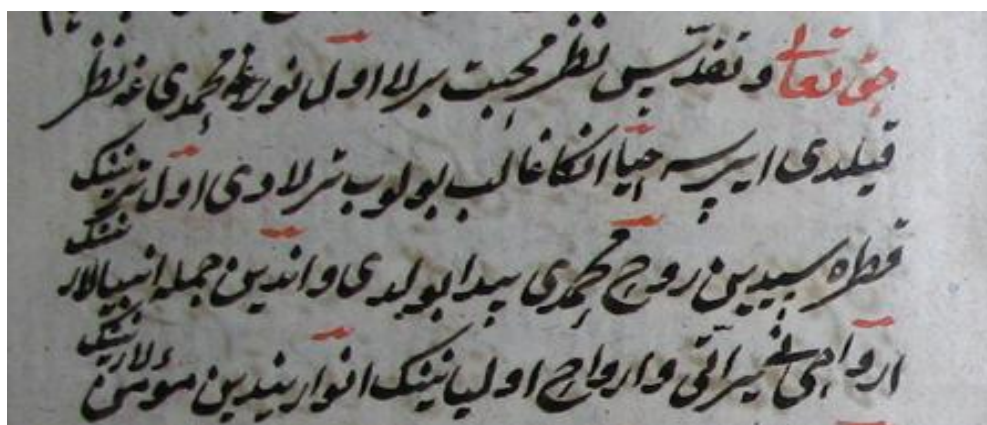 حق تعالی و تقدّس نظر محبت برلا اول نورغه محمدی غه نظر
قیلدی ایرسه حیا انکا غالب بولوب ترلادی اول ترنینک
قطره سیدین روح محمدی پیدا بولدی و اندین جمله انبیالار نینک
ارواحی و اروح اولیا نینک انواریندین مؤمن لار نینک